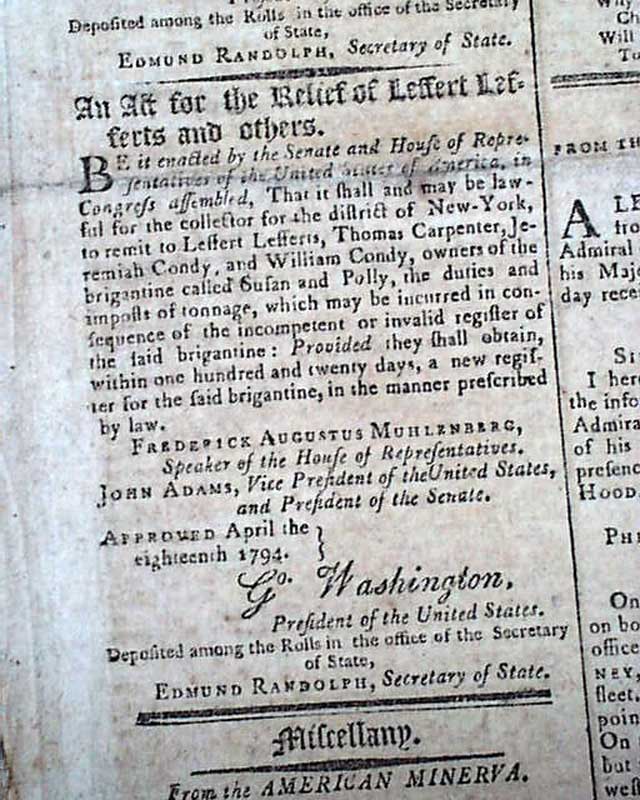 Deposited among the Rolls in the office of the Secretary
of State,
EDMUND RANDOLPH, Secretary of State.
An Act for the Relief of Leffert Lef-
ferts and others.
BE it enacted by the Senate and House of Repre-
sentatives of the United States of America, in
Congress assembled, That it shall and may be law-
ful for the collector for the district of New-York,
to remit to Leffert Lefferts, Thomas Carpenter, Je-
remiah Condy, and William Condy, owners of the
brigantine called Susan and Polly, the duties and
imposts of tonnage, which may be incurred in con-
sequence of the incompetent or invalid register of
the said brigantine: Provided they shall obtain,
within one hundred and twenty days, a new regis-
ter for the said brigantine, in the manner prescribed
by law.
FREDERICK AUGUSTUS MUHLENBERG,
Speaker of the House of Representatives.
JOHN ADAMS, Vice President of the United States,
and President of the Senate.
APPROVED April the
eighteenth 1794.
Go. Washington,
President of the United States.
Deposited among the Rolls in the office of the Secretary
of State,
EDMUND RANDOLPH, Secretary of State.
Miscellany.
From the AMERICAN MINERVA.
Why
Ch
Will
To
FROM TH
A LE
fro
Admiral
his Maje
day recei
Si
I here
the info
Admira
of his
presenc
HOOD
PH
On
on bo
office
NEY,
fleet.
poin
On
but
wes